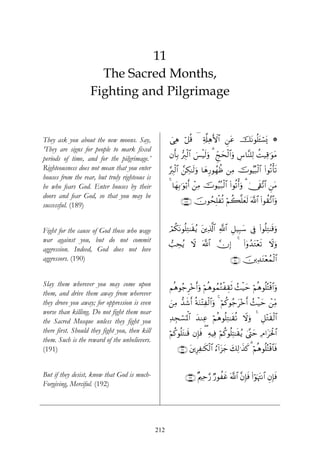 11
The Sacred Months,
Fighting and Pilgrimage
They ask you about the new moons. Say,
'They are signs for people to mark fixed
periods of time, and for the pilgrimage.'
Righteousness does not mean that you enter
houses from the rear, but truly righteous is
he who fears God. Enter houses by their
doors and fear God, so that you may be
successful. (189)
۞ يَسْـَٔلُونَكَ عَنِ ٱلْأَهِلَّةِ ۖ قُلْ هِىَ
مَوَٰقِيتُ لِلنَّاسِ وَٱلْحَجِّ ۗ وَلَيْسَ ٱلْبِرُّ بِأَن
تَأْتُوا۟ ٱلْبُيُوتَ مِن ظُهُورِهَا وَلَٰكِنَّ ٱلْبِرَّ
مَنِ ٱتَّقَىٰ ۗ وَأْتُوا۟ ٱلْبُيُوتَ مِنْ أَبْوَٰبِهَا ۚ
وَٱتَّقُوا۟ ٱللَّهَ لَعَلَّكُمْ تُفْلِحُونَ ﴿١٨٩﴾
Fight for the cause of God those who wage
war against you, but do not commit
aggression. Indeed, God does not love
aggressors. (190)
وَقَٰتِلُوا۟ فِى سَبِيلِ ٱللَّهِ ٱلَّذِينَ يُقَٰتِلُونَكُمْ
وَلَا تَعْتَدُوٓا۟ ۚ إِنَّ ٱللَّهَ لَا يُحِبُّ
ٱلْمُعْتَدِينَ ﴿١٩٠﴾
Slay them wherever you may come upon
them, and drive them away from wherever
they drove you away; for oppression is even
worse than killing. Do not fight them near
the Sacred Mosque unless they fight you
there first. Should they fight you, then kill
them. Such is the reward of the unbelievers.
(191)
وَٱقْتُلُوهُمْ حَيْثُ ثَقِفْتُمُوهُمْ وَأَخْرِجُوهُم
مِّنْ حَيْثُ أَخْرَجُوكُمْ ۚ وَٱلْفِتْنَةُ أَشَدُّ مِنَ
ٱلْقَتْلِ ۚ وَلَا تُقَٰتِلُوهُمْ عِندَ ٱلْمَسْجِدِ
ٱلْحَرَامِ حَتَّىٰ يُقَٰتِلُوكُمْ فِيهِ ۖ فَإِن قَٰتَلُوكُمْ
فَٱقْتُلُوهُمْ ۗ كَذَٰلِكَ جَزَآءُ ٱلْكَٰفِرِينَ ﴿١٩١﴾
But if they desist, know that God is much-
Forgiving, Merciful. (192)
فَإِنِ ٱنتَهَوْا۟ فَإِنَّ ٱللَّهَ غَفُورٌ رَّحِيمٌ ﴿١٩٢﴾
212